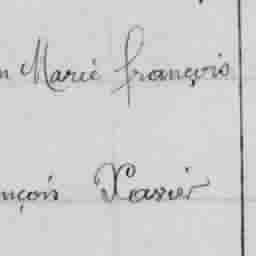 n Marie françois
nçois Xavier